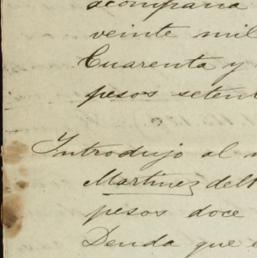 acompaña
veinte mil
Cuarenta y
pesos seten
Introdujo al
Martinez del
pesos doce
Deuda que